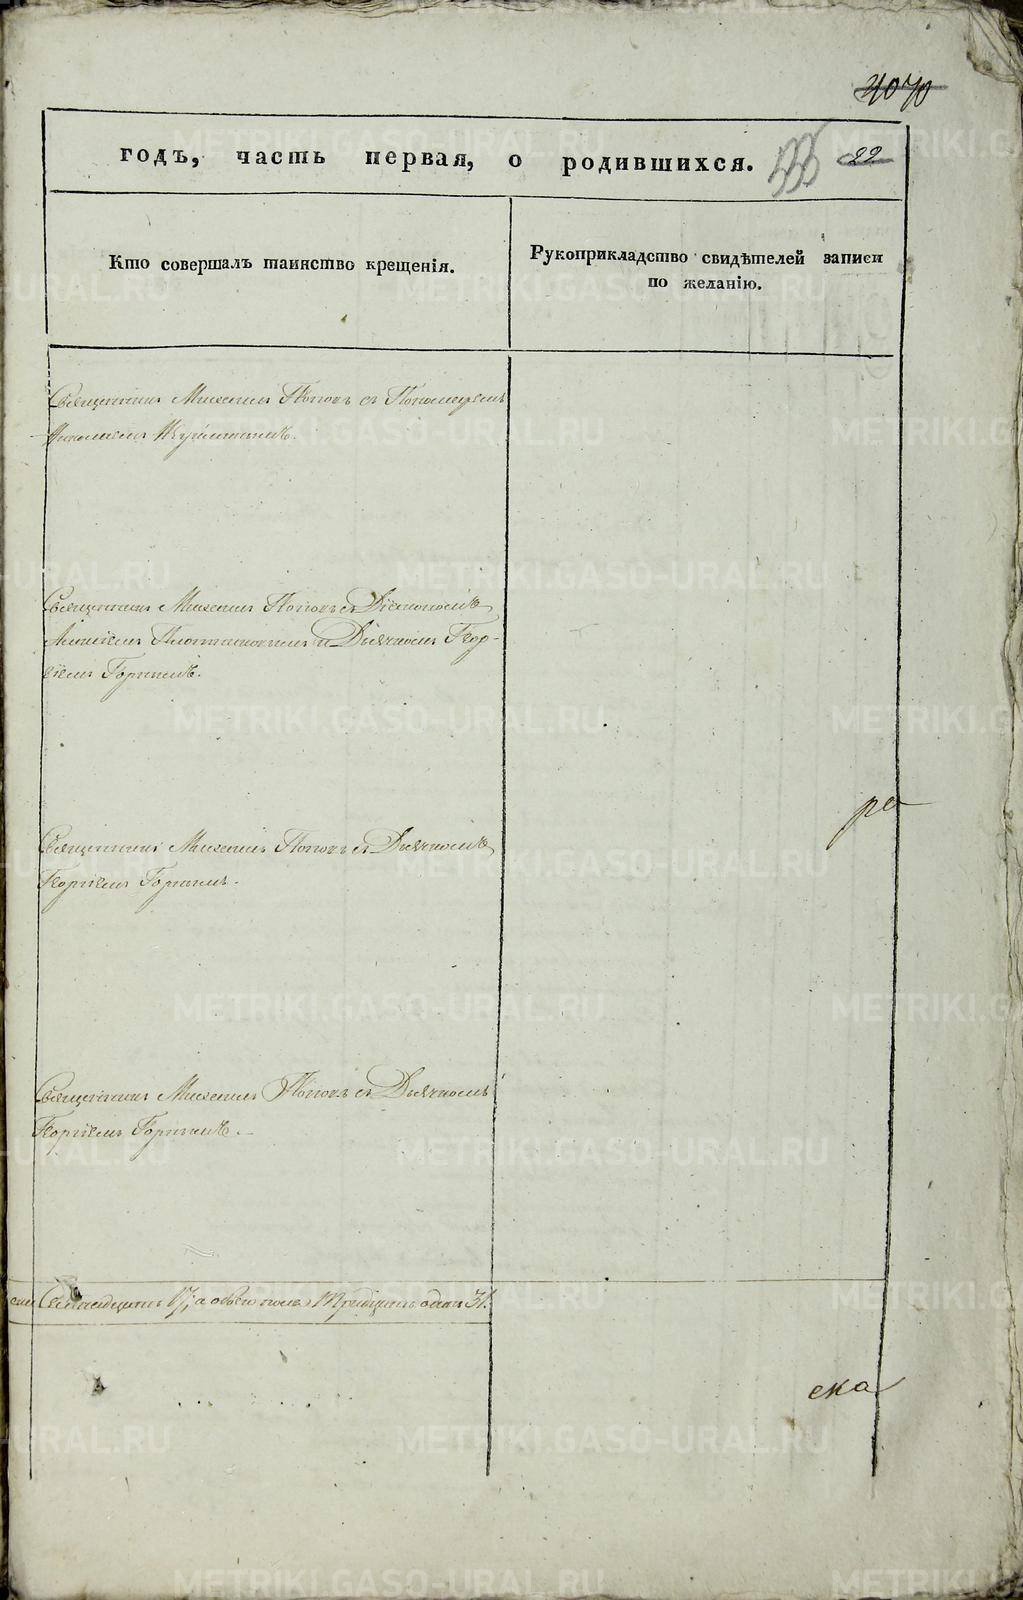 4070
годъ, часть первая, о родившихся. 335 22
Кто совершалъ таинство крещенія.
Рукоприкладство свидѣтелей записи
по желанію.
Священникъ Михаилъ Поповъ съ Пономаремъ
Николаемъ
Священникъ Михаилъ Поповъ съ Діакономъ
Алексѣемъ и Дьячкомъ Геор-
гіемъ Горнымъ.
ра
Священникъ Михаилъ Поповъ съ Дьячкомъ
Георгіемъ Горнымъ.
Священникъ Михаилъ Поповъ съ Дьячкомъ
Георгіемъ Горнымъ.
Семнадцать 17, а обоего пола Тридцать одинъ 31.
ска
METRIKI.GASO-URAL.RU